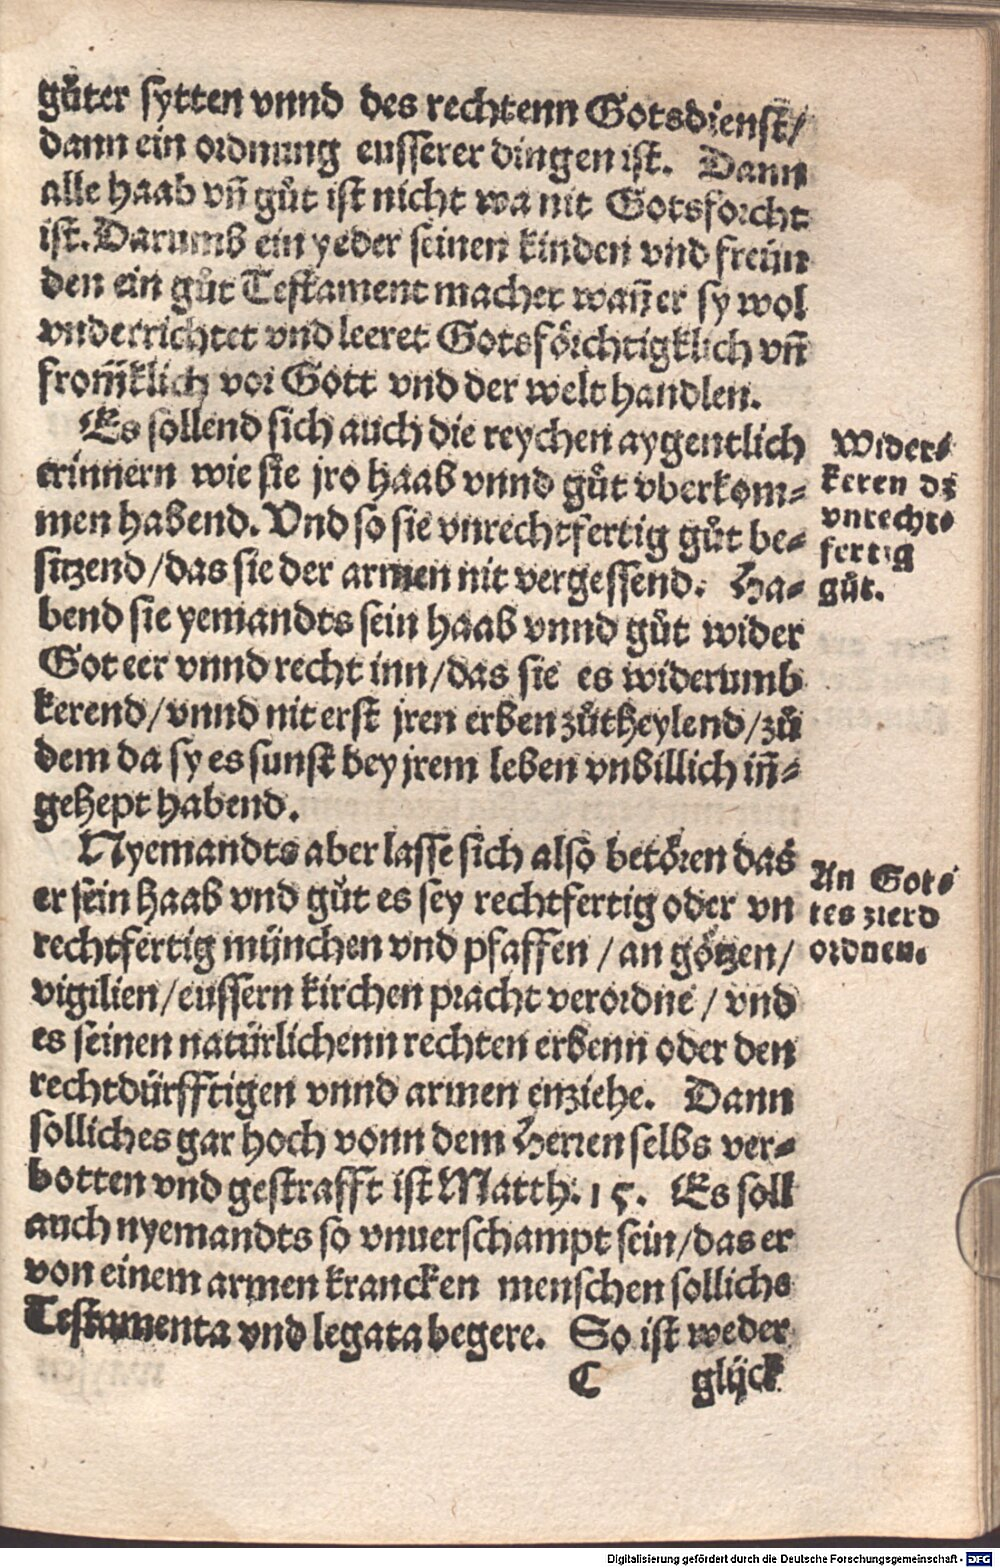 gůter sytten vnnd des rechtenn Gotsdienst/
dann ein ordnung eusserer dingen ist. Dann
alle haab vn̄ gůt ist nicht wa nit Gotsforcht
ist. Darumb ein yeder seinen kinden vnd freün
den ein gůt Testament machet wan̄ er sy wol
vnderrichtet vnd leeret Gotsförchtigklich vn̄
from̄klich vor Gott vnd der welt handlen.
Es sollend sich auch die reychen aygentlich
erinnern wie sie jro haab vnnd gůt vberkom-
men habend. Vnd so sie vnrechtfertig gůt be-
sitzend/das sie der armen nit vergessend. Ha-
bend sie yemandts sein haab vnnd gůt wider
Got eer vnnd recht inn/das sie es widerumb
kerend/vnnd nit erst jren erben zůtheylend/zů
dem da sy es sunst bey jrem leben vnbillich in̄-
gehept habend.
Wider-
keren dz
vnrecht-
fertig
gůt.
Nyemandts aber lasse sich also betören das
er sein haab vnd gůt es sey rechtfertig oder vn
rechtfertig münchen vnd pfaffen / an götzen/
vigilien/eussern kirchen pracht verordne / vnd
es seinen natürlichenn rechten erbenn oder den
rechtdürfftigen vnnd armen enziehe. Dann
solliches gar hoch vonn dem Herren selbs ver-
botten vnd gestrafft ist Matth. 15. Es soll
auch nyemandts so vnuerschampt sein/das er
von einem armen krancken menschen sollichs
Testamenta vnd legata begere. So ist weder
An Got-
tes zierd
ordnen.
C glück
Digitalisierung gefördert durch die Deutsche Forschungsgemeinschaft - DFG